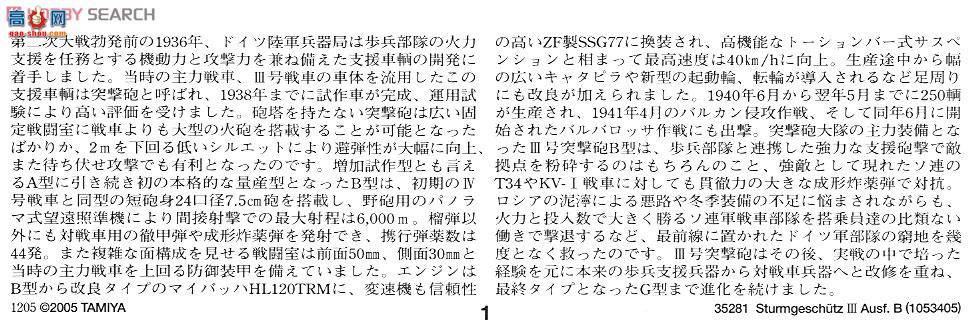 HOBBY SEARCH
高网
gao-shou.com
第二次大戦勃発前の1936年、ドイツ陸軍兵器局は歩兵部隊の火力
支援を任務とする機動力と攻撃力を兼ね備えた支援車輌の開発に
着手しました。当時の主力戦車、Ⅲ号戦車の車体を流用したこの
支援車輌は突撃砲と呼ばれ、1938年までに試作車が完成、運用試
験により高い評価を受けました。砲塔を持たない突撃砲は広い固
定戦闘室に戦車よりも大型の火砲を搭載することが可能となった
ばかりか、2mを下回る低いシルエットにより避弾性が大幅に向上、
また待ち伏せ攻撃でも有利となったのです。増加試作型とも言え
るA型に引き続き初の本格的な量産型となったB型は、初期のⅣ
号戦車と同型の短砲身24口径7.5㎝砲を搭載し、野砲用のパノラ
マ式望遠照準機により間接射撃での最大射程は6,000m。榴弾以
外にも対戦車用の徹甲弾や成形炸薬弾を発射でき、携行弾薬数は
44発。また複雑な面構成を見せる戦闘室は前面50㎜、側面30㎜と
当時の主力戦車を上回る防御装甲を備えていました。エンジンは
B型から改良タイプのマイバッハHL120TRMに、変速機も信頼性
の高いZF製SSG77に換装され、高機能なトーションバー式サスペ
ンションと相まって最高速度は40km/hに向上。生産途中から幅
の広いキャタピラや新型の起動輪、転輪が導入されるなど足周り
にも改良が加えられました。1940年6月から翌年5月までに250輌
が生産され、1941年4月のバルカン侵攻作戦、そして同年6月に開
始されたバルバロッサ作戦にも出撃。突撃砲大隊の主力装備とな
ったⅢ号突撃砲B型は、歩兵部隊と連携した強力な支援砲撃で敵
拠点を粉砕するのはもちろんのこと、強敵として現れたソ連の
T34やKV-Ⅰ戦車に対しても貫徹力の大きな成形炸薬弾で対抗。
ロシアの泥濘による悪路や冬季装備の不足に悩まされながらも、
火力と投入数で大きく勝るソ連軍戦車部隊を搭乗員達の比類ない
働きで撃退するなど、最前線に置かれたドイツ軍部隊の窮地を幾
度となく救ったのです。Ⅲ号突撃砲はその後、実戦の中で培った
経験を元に本来の歩兵支援兵器から対戦車兵器へと改修を重ね、
最終タイプとなったG型まで進化を続けました。
1205 ©2005 TAMIYA
1
35281 Sturmgeschütz Ⅲ Ausf. B (1053405)